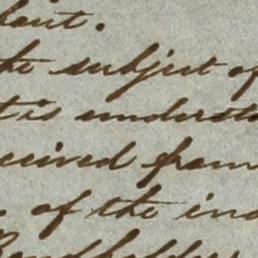 the subject of
t is underst
ceived from
of the ind
Bondholder